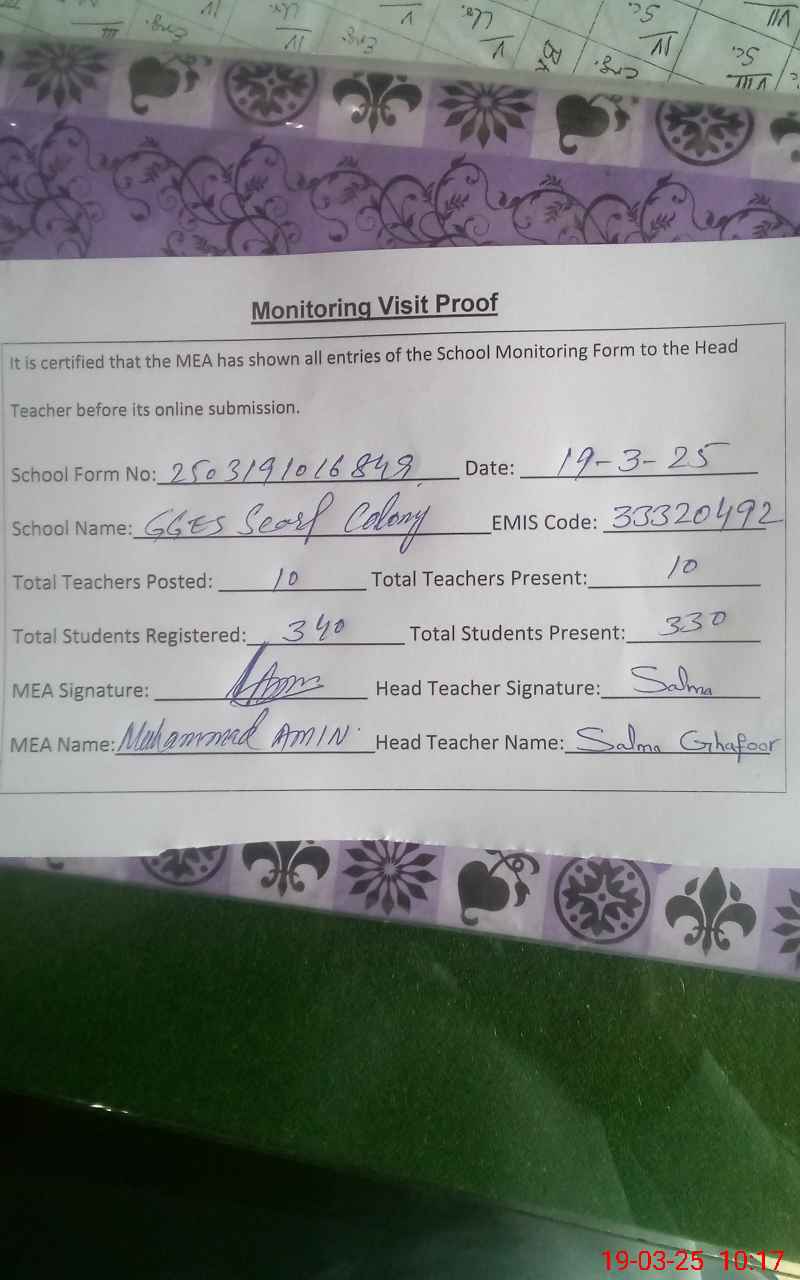 Monitoring Visit Proof
It is certified that the MEA has shown all entries of the School Monitoring Form to the Head
Teacher before its online submission.
School Form No: 2503191016849 Date: 19-3-25
School Name: GGES Scarf Colony EMIS Code: 33320492
Total Teachers Posted: 10 Total Teachers Present: 10
Total Students Registered: 340 Total Students Present: 330
MEA Signature: Head Teacher Signature: Salma
MEA Name: Muhammad AMIN Head Teacher Name: Salma Ghafoor
19-03-25 10:17